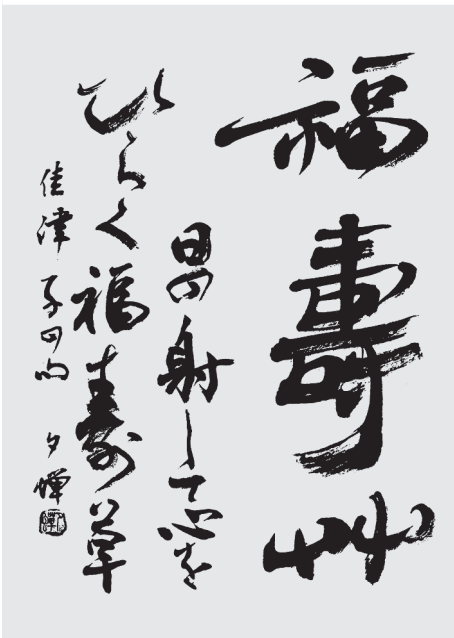 福壽艸
日の射して心を
ひらく福寿草
佳津子の句 夕